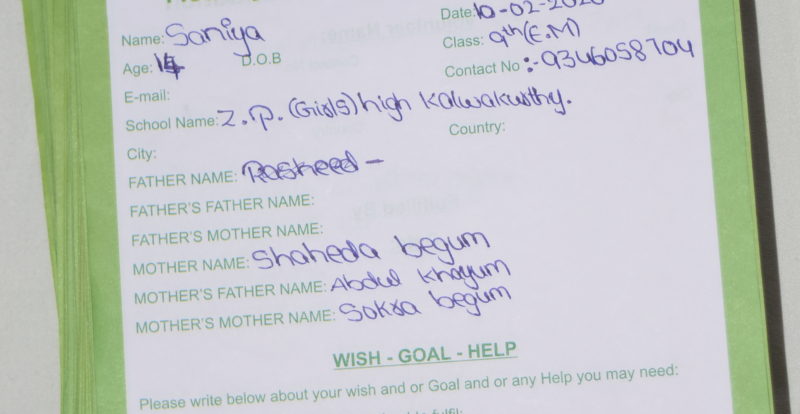 Date: 10-02-2020
Name: Saniya
Class: 9th (E.M)
Age: 14 D.O.B
Contact No :- 9346058704
E-mail:
School Name: Z.P. (Girls) high Kalwakurthy.
City: Country:
FATHER NAME: Rasheed -
FATHER'S FATHER NAME:
FATHER'S MOTHER NAME:
MOTHER NAME: Shaheda begum
MOTHER'S FATHER NAME: Abdul Khayum
MOTHER'S MOTHER NAME: Sokra begum
WISH - GOAL - HELP
Please write below about your wish and or Goal and or any Help you may need: